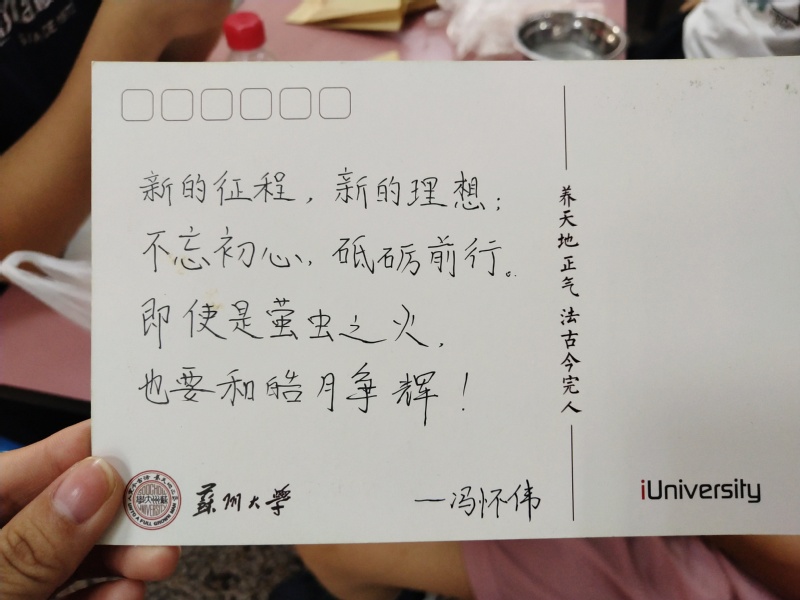 新的征程，新的理想；
不忘初心，砥砺前行。
即使是萤虫之火，
也要和皓月争辉！
—冯怀伟
蘇州大學
养天地正气 法古今完人
iUniversity